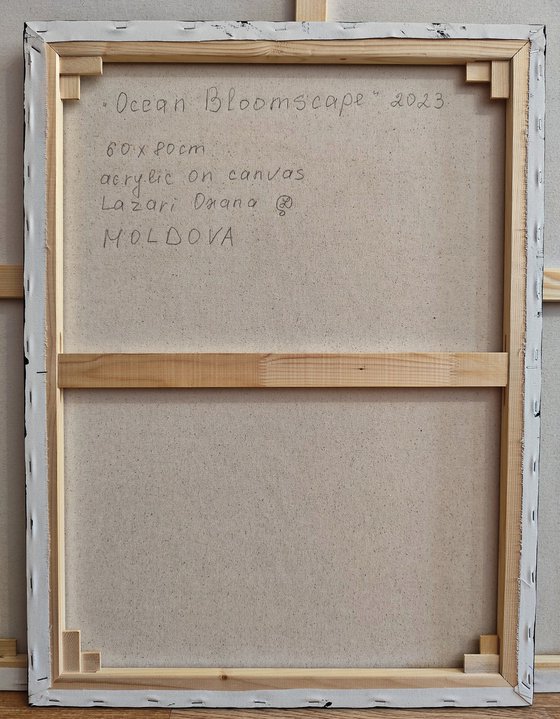 "Ocean Bloomscape" 2023
60x80cm
acrylic on canvas
Lazari Oxana
MOLDOVA